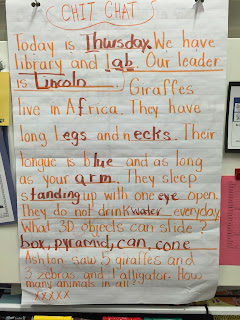 CHIT CHAT
Today is Thursday. We have
library and lab. Our leader
is Lincoln. Giraffes
live in Africa. They have
long legs and necks. Their
tongue is blue and as long
as your arm. They sleep
standing up with one eye open.
They do not drink water everyday.
What 3D objects can slide?
box, pyramid, can, cone
Ashton saw 5 giraffes and
3 zebras and 1 alligator. How
many animals in all?
XXXXX